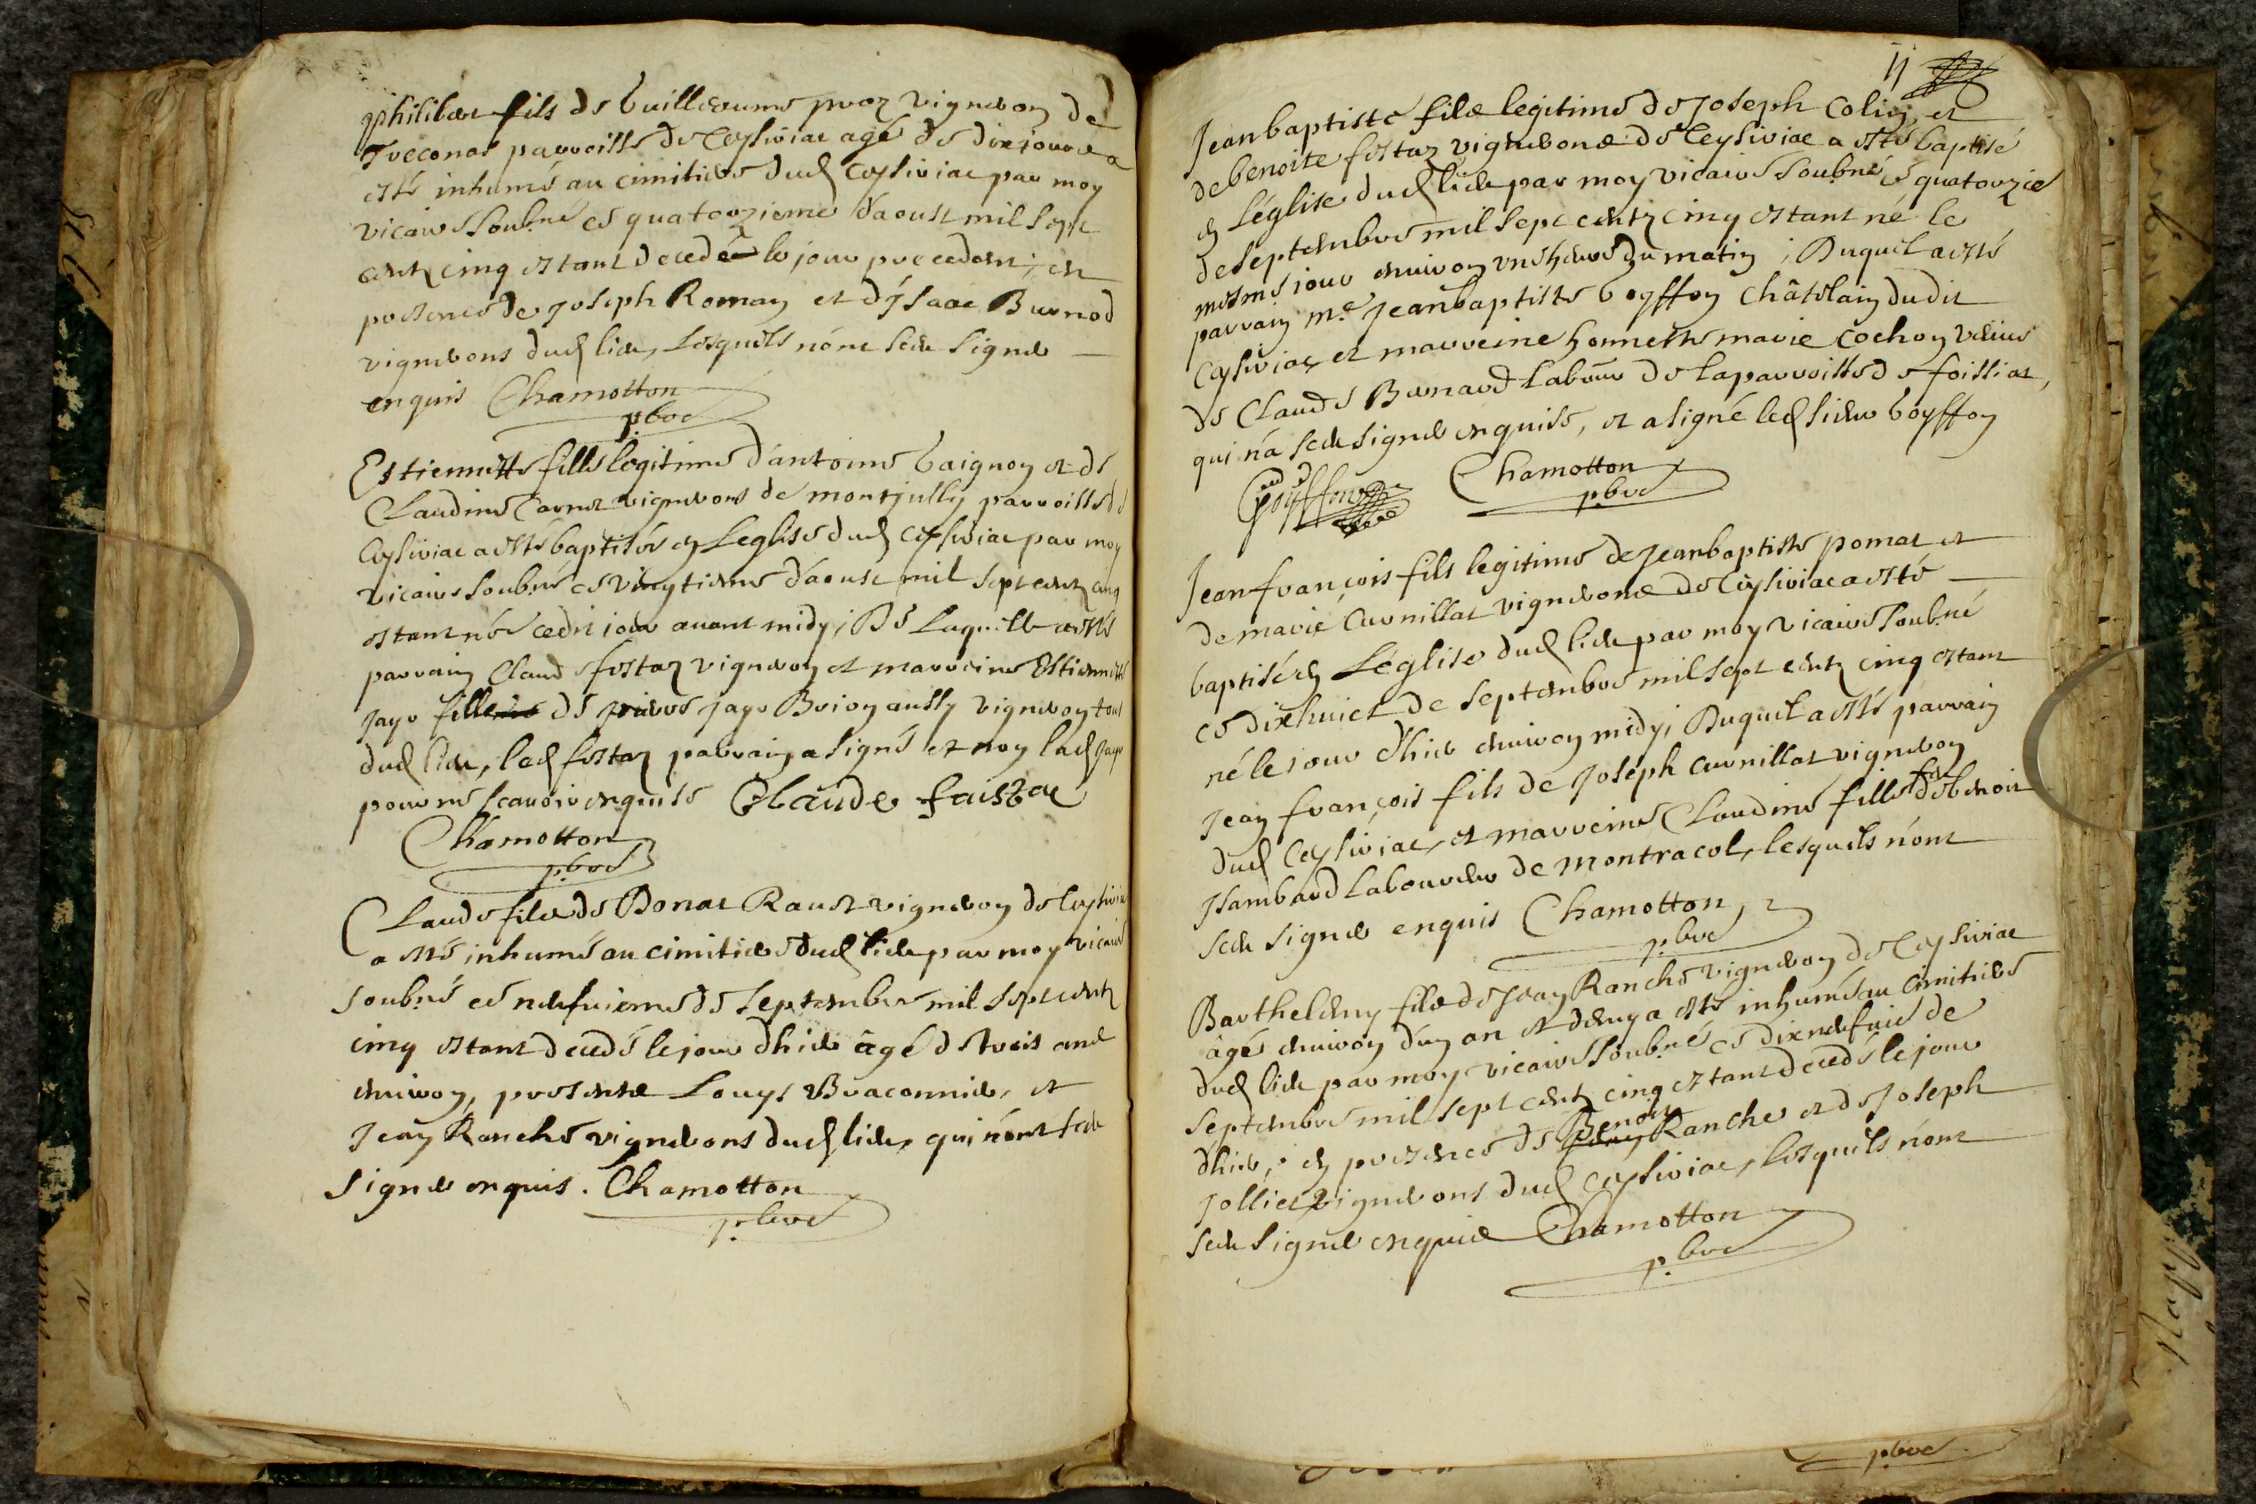 philibert fils de Guilleaume proz vigneron de
Treconas parroisse de Ceysiriac agé de dix jours a
esté inhumé au cimitiere dud Ceysiriac par moy
vicaire soubné ce quatorzieme d'aoust mil sept
centz cinq estant decedé le jour precedent; en
presence de joseph Roman et d'jsaac Burnod
vignerons dud lieu, lesquels n'ont sceu signer
enquis Chamotton
pbre
Estiennette fille legitime d'antoine Gaignon et de
Claudine Carret vignerons de montjully parroisse de
Ceysiriac a esté baptisée en L'eglise dud Ceysiriac par moy
vicaire soubné ce vingtieme d'aoust mil sept centz cinq
estant née cedit jour avant midy; De Laquelle a esté
parrain Claude festaz vigneron et marreine Estiennette
jayr fille de pierre jayr Brion aussy vigneron tous
dud lieu, led festaz parrain a signé et non lad jayr
pour ne scavoir enquise Claude faistae
Chamotton
pbre
Claude fils de Donat Raust vigneron de Ceysiriac
a esté inhumé au cimitiere dud lieu par moy vicaire
soubné ce neufuieme de septembre mil sept centz
cinq estant decedé le jour d'hier âgé de trois ans
enuiron, presents Louys Braconnier, et
Jean Ranche vignerons dud lieu, qui n'ont sceu
signer enquis. Chamotton
pbre
11
Jean baptiste fils legitime de Joseph Colin, et
de benoite festaz vignerons de Ceysiriac a esté baptisé
en L'église dud lieu par moy vicaire soubné ce quatorzie
de septembre mil sept centz cinq estant né le
mesme jour enuiron une heure du matin; Duquel a esté
parrain me Jean baptiste Goyffon Châtelain dudit
Ceysiriac, et marreine honneste marie Cochon veuue
de Claude Bernard Labour de la parroisse de foissiat,
qui n'a sceu signer enquise, et a signé led sieur Goyffon
Goyffon Chamotton
pbre
Jean françois fils legitime de Jean baptiste pomat et
de marie Curnillat vignerons de Ceysiriac a esté
baptisé en L'église dud lieu par moy vicaire soubné
ce dixhuict de septembre mil sept centz cinq estant
né le jour d'hier enuiron midy; Duquel a esté parrain
Jean françois fils de Joseph Curnillat vigneron
dud Ceysiriac, et marreine Claudine fille de benoit
Jsambard Laboureur de montracol, lesquels n'ont
sceu signer enquis Chamotton,
pbre
Barthelemy fils de Jean Ranche vigneron de Ceysiriac
âgé enuiron d'un an et demy a esté inhumé au cimitiere
dud lieu par moy vicaire soubné ce dixneufuie de
septembre mil sept centz cinq estant decedé le jour
d'hier, en presence de Benoit Ranche et de Joseph
Jolliet vignerons dud Ceysiriac, lesquels n'ont
sceu signer enquis Chamotton
pbre
pbre